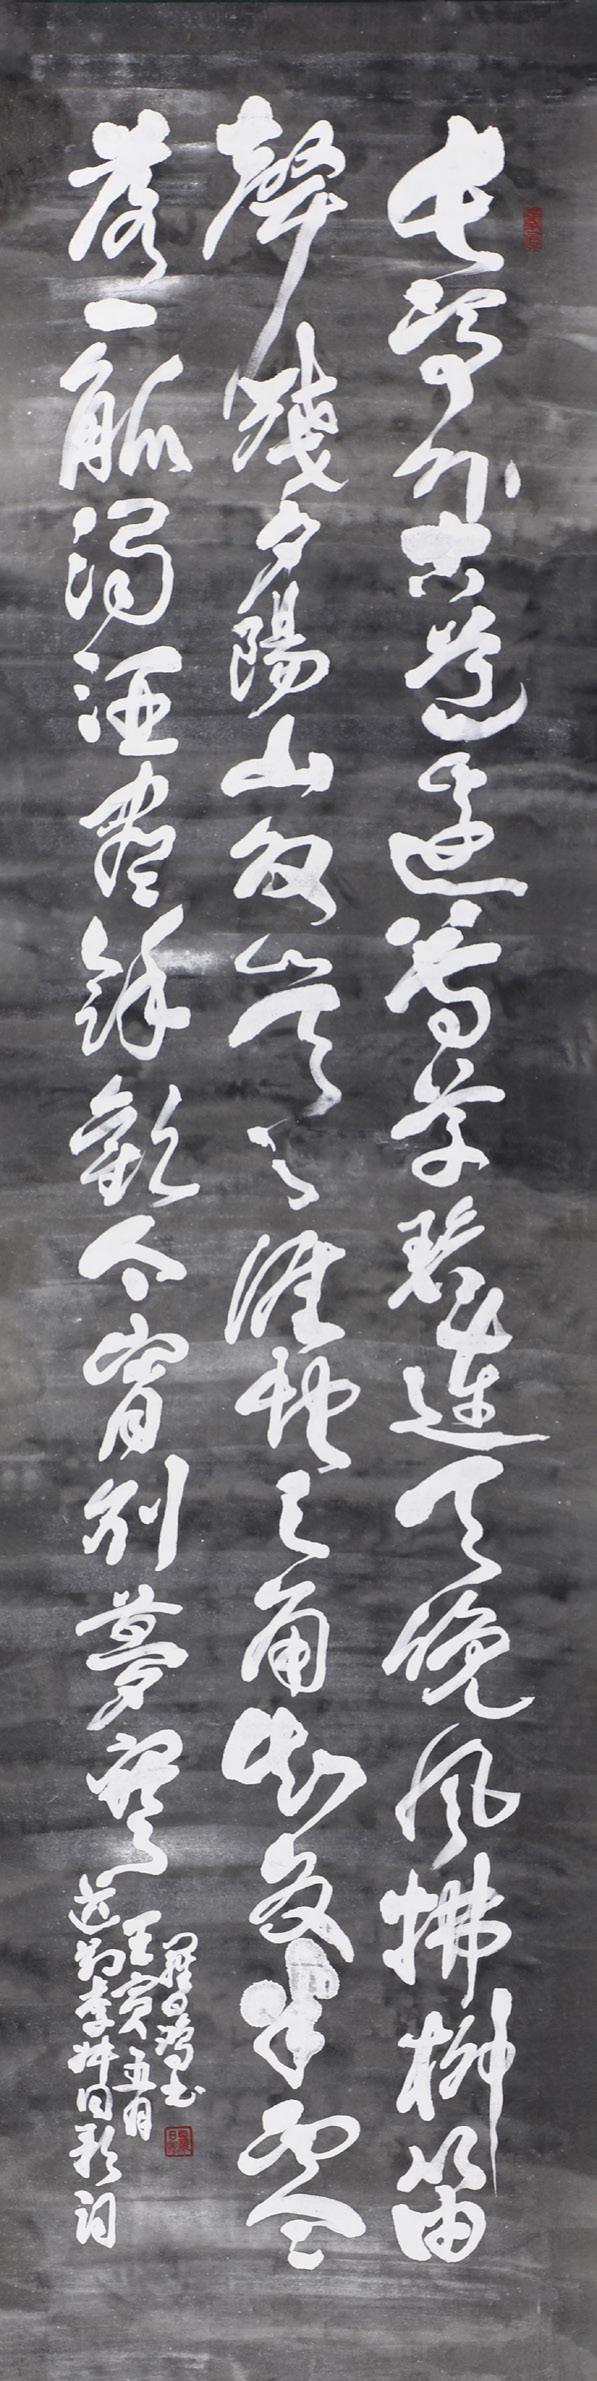 長亭外古道邊芳草碧連天晚風拂柳笛
聲殘夕陽山外山天之涯地之角知交半零
落一觚濁酒盡餘歡今宵別夢寒
送別李叔同歌詞
壬寅五月
羅日書